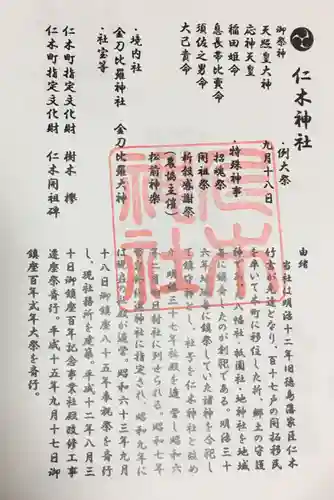 仁木神社
御祭神
天照皇大神
応神天皇
稲田姫命
息長帯比賣命
須佐之男命
大己貴命
・境内社
金刀比羅神社 金刀比羅大神
・社宝等
仁木町指定文化財 樹木 欅
仁木町指定文化財 仁木開祖碑
・例大祭
九月十八日
・特殊神事
招魂祭
開祖祭
新穀感謝祭
(農協主催)
松前神楽
由緒
当社は明治十二年旧徳島藩家臣仁木
竹吉が先達となり、百十七戸の開拓移民
を率いて本町に移住した折、郷土の守護
神 八幡社・祇園社・地神社を地域
に鎮斎したのが創祀である。明治三十
六年 地域に鎮祭していた諸神を合祀し
て鎮守の神とし、社号を仁木神社と改め
明治三十七年社殿を造営し昭和六
年 月二 日村社に列せらる。昭和七年
神社に指定され、昭和九年に
は現在の社殿が造営、昭和六十三年九月
十八日御鎮座八十五年奉祝祭を斎行
し、現社務所を建築。平成十二年八月三
十日御鎮座百年記念事業社殿改修工事
遷座祭斎行。平成十五年九月十七日御
鎮座百年式年大祭を斎行。
仁木
神社